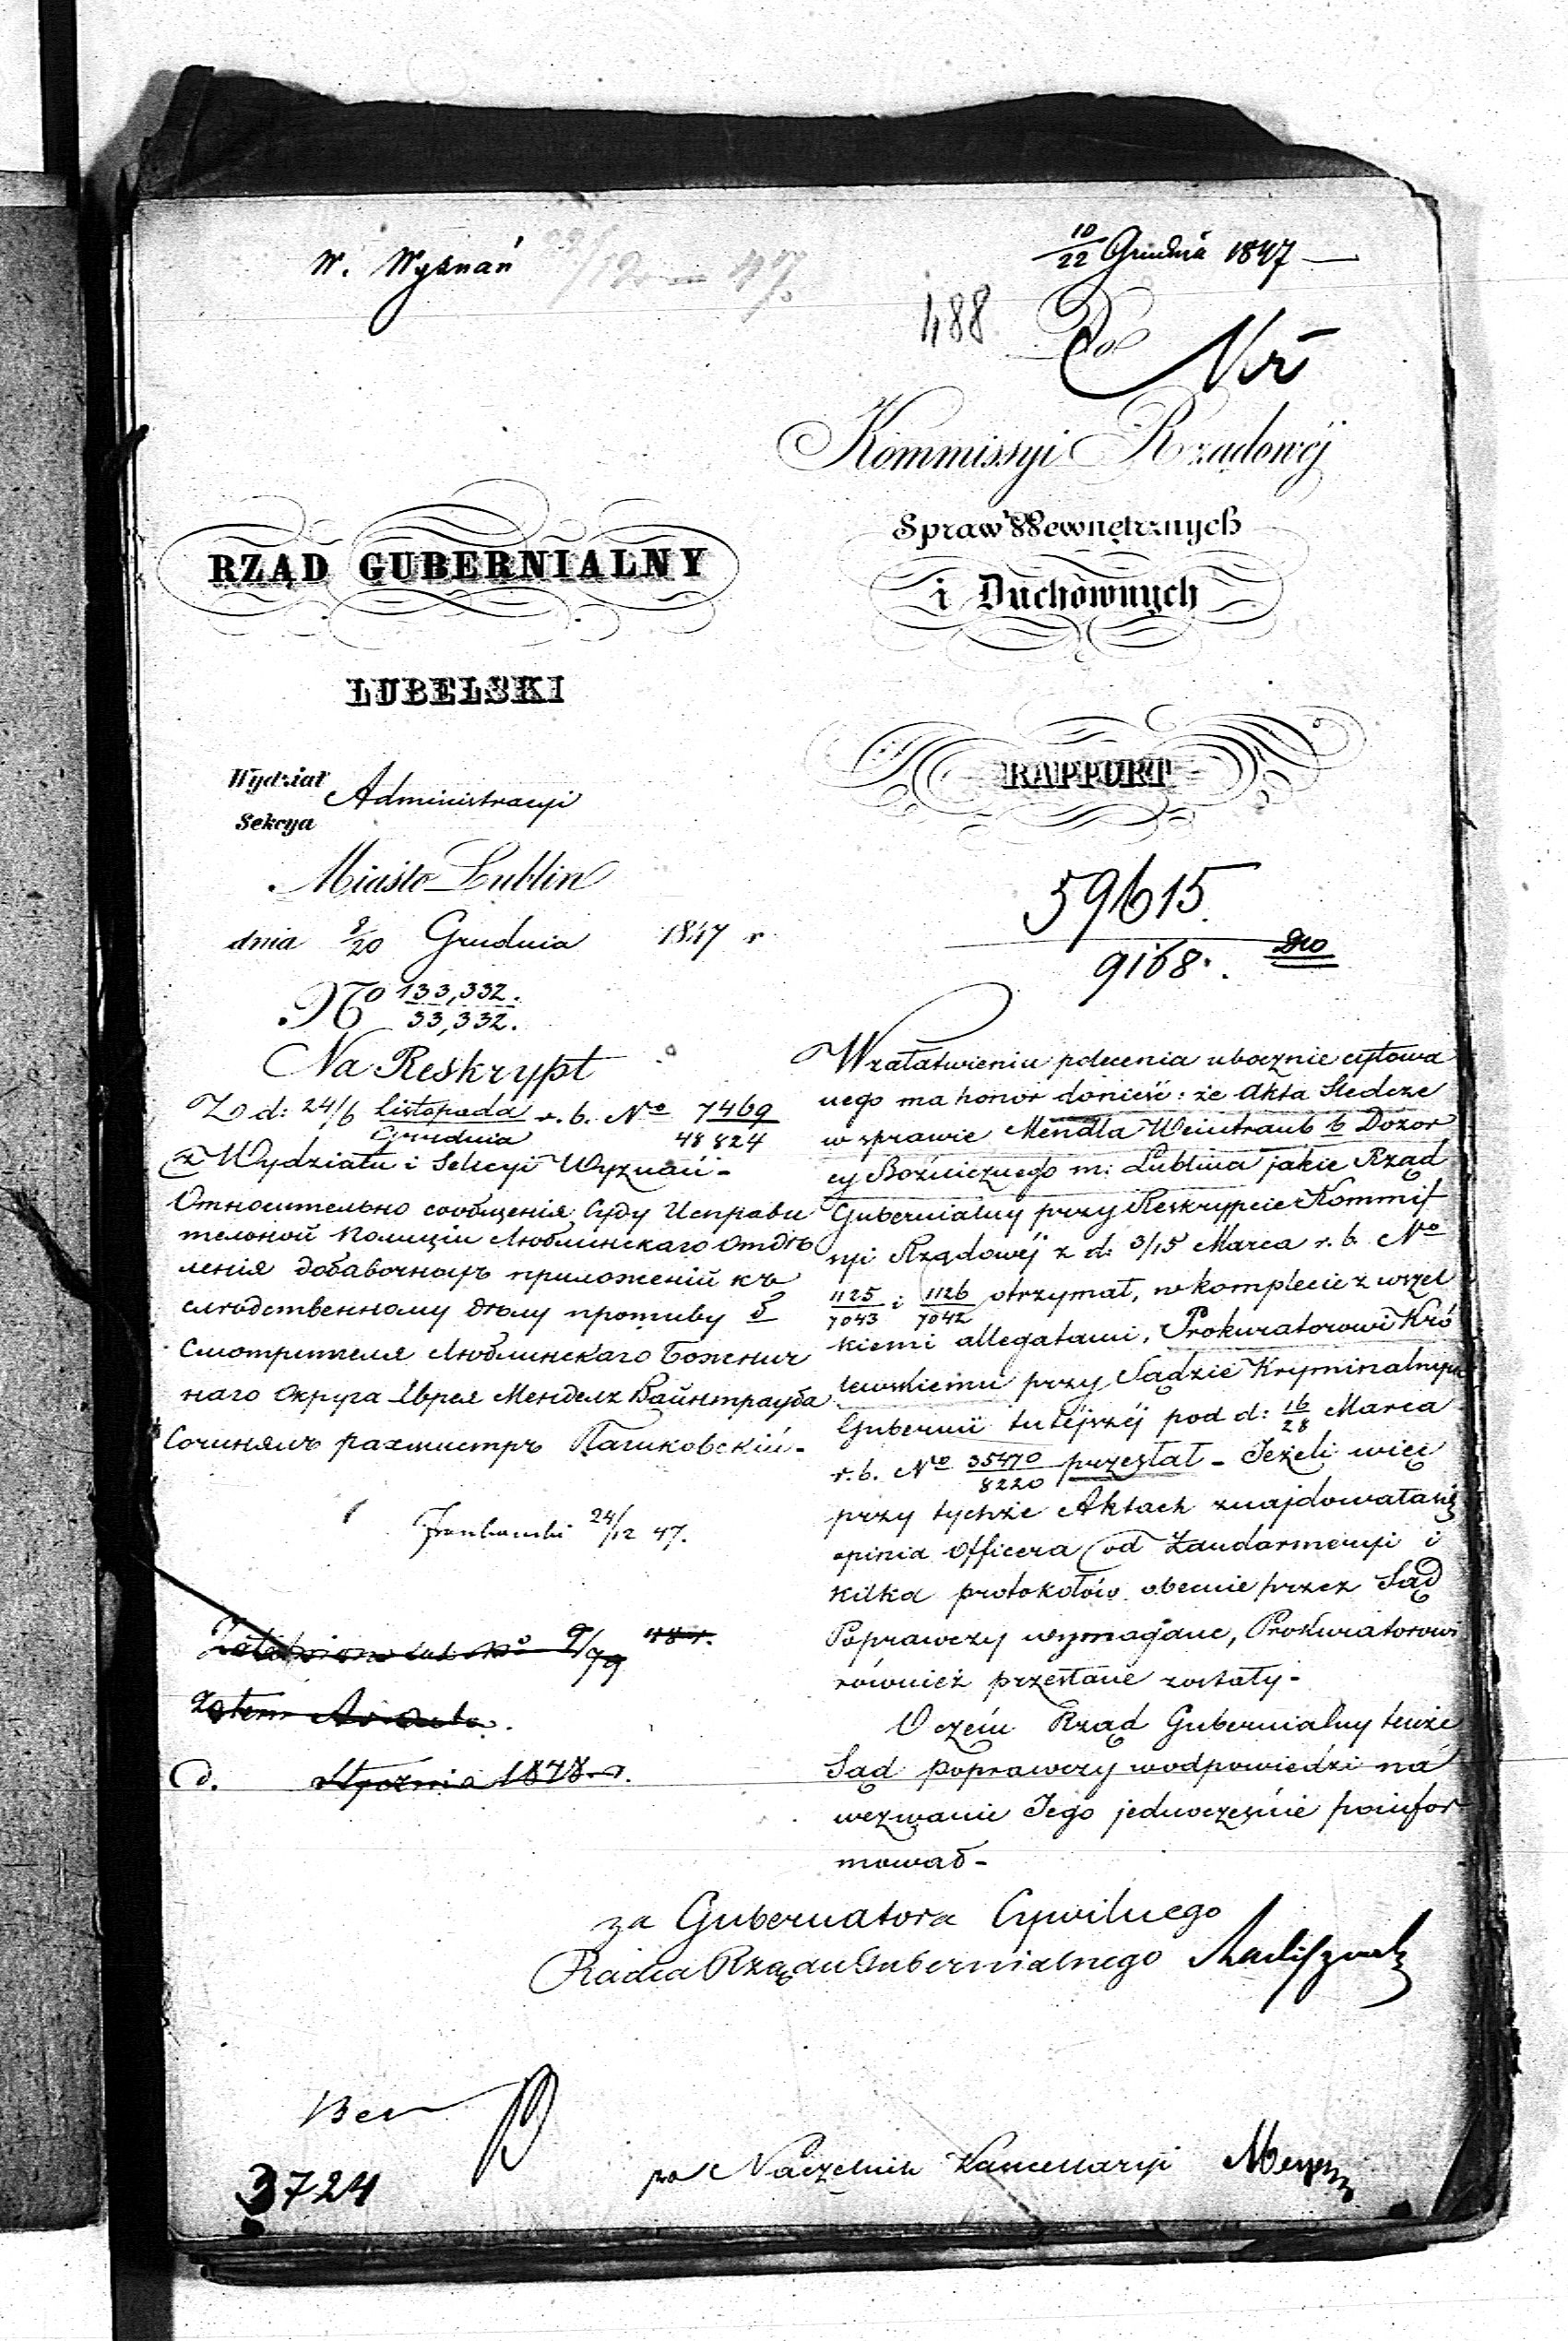 W. Wyznań
10/22 Grudnia 1847
488
Do
Kommissyi Rządowéj
Spraw Wewnętrznych
i Duchownych
RZĄD GUBERNIALNY
LUBELSKI
RAPPORT
Wydział Administracyi
Sekcya
Miasto Lublin
dnia 8/20 Grudnia 1847 r
No 133,332.
33,332.
Na Reskrypt
Z d: 24/6 Listopada/Grudnia r. b. No 7469/48824
z Wydziału i Sekcyi Wyznań -
Относительно сообщенія Суду Исправи
тельной Полиціи Люблинскаго Отдѣ
ленія добавочныхъ приложеній къ
слѣдственному дѣлу противу б
Смотрителя Люблинскаго Божнич
наго Округа Еврея Менделя Вайнтрауба
Сочинялъ рахмистръ
24/12 47.
59615
9168.
W załatwieniu polecenia ubocznie cytowa
nego ma honor donieść: że Akta Sledcze
w sprawie Mendla Weintraub b Dozor
cy Bożniczego m: Lublina jakie Rząd
Gubernialny przy Reskrypcie Kommis
syi Rządowéj z d: 3/15 Marca r. b. No
1125/7043 i 1126/7042 otrzymał, w komplecie z wszel
kiemi allegatami, Prokuratorowi Kró
lewskiemu przy Sądzie Kryminalnym
Gubernii tutéjszéj pod d: 16/28 Marca
r. b. No 35470/8220 przesłał - Jeżeli więc
przy tychże Aktach znajdowała się
opinia Officera od Żandarmeryi i
kilka protokołów obecnie przez Sąd
Poprawczy wymagane, Prokuratorowi
również przesłane zostały -
O czém Rząd Gubernialny tenże
Sąd Poprawczy w odpowiedzi na
wezwanie Jego jednocześnie poinfor
mował -
d. Stycznia 1848 r.
za Gubernatora Cywilnego
Radca Rządu Gubernialnego
po Naczelnik Kancellaryi
3724